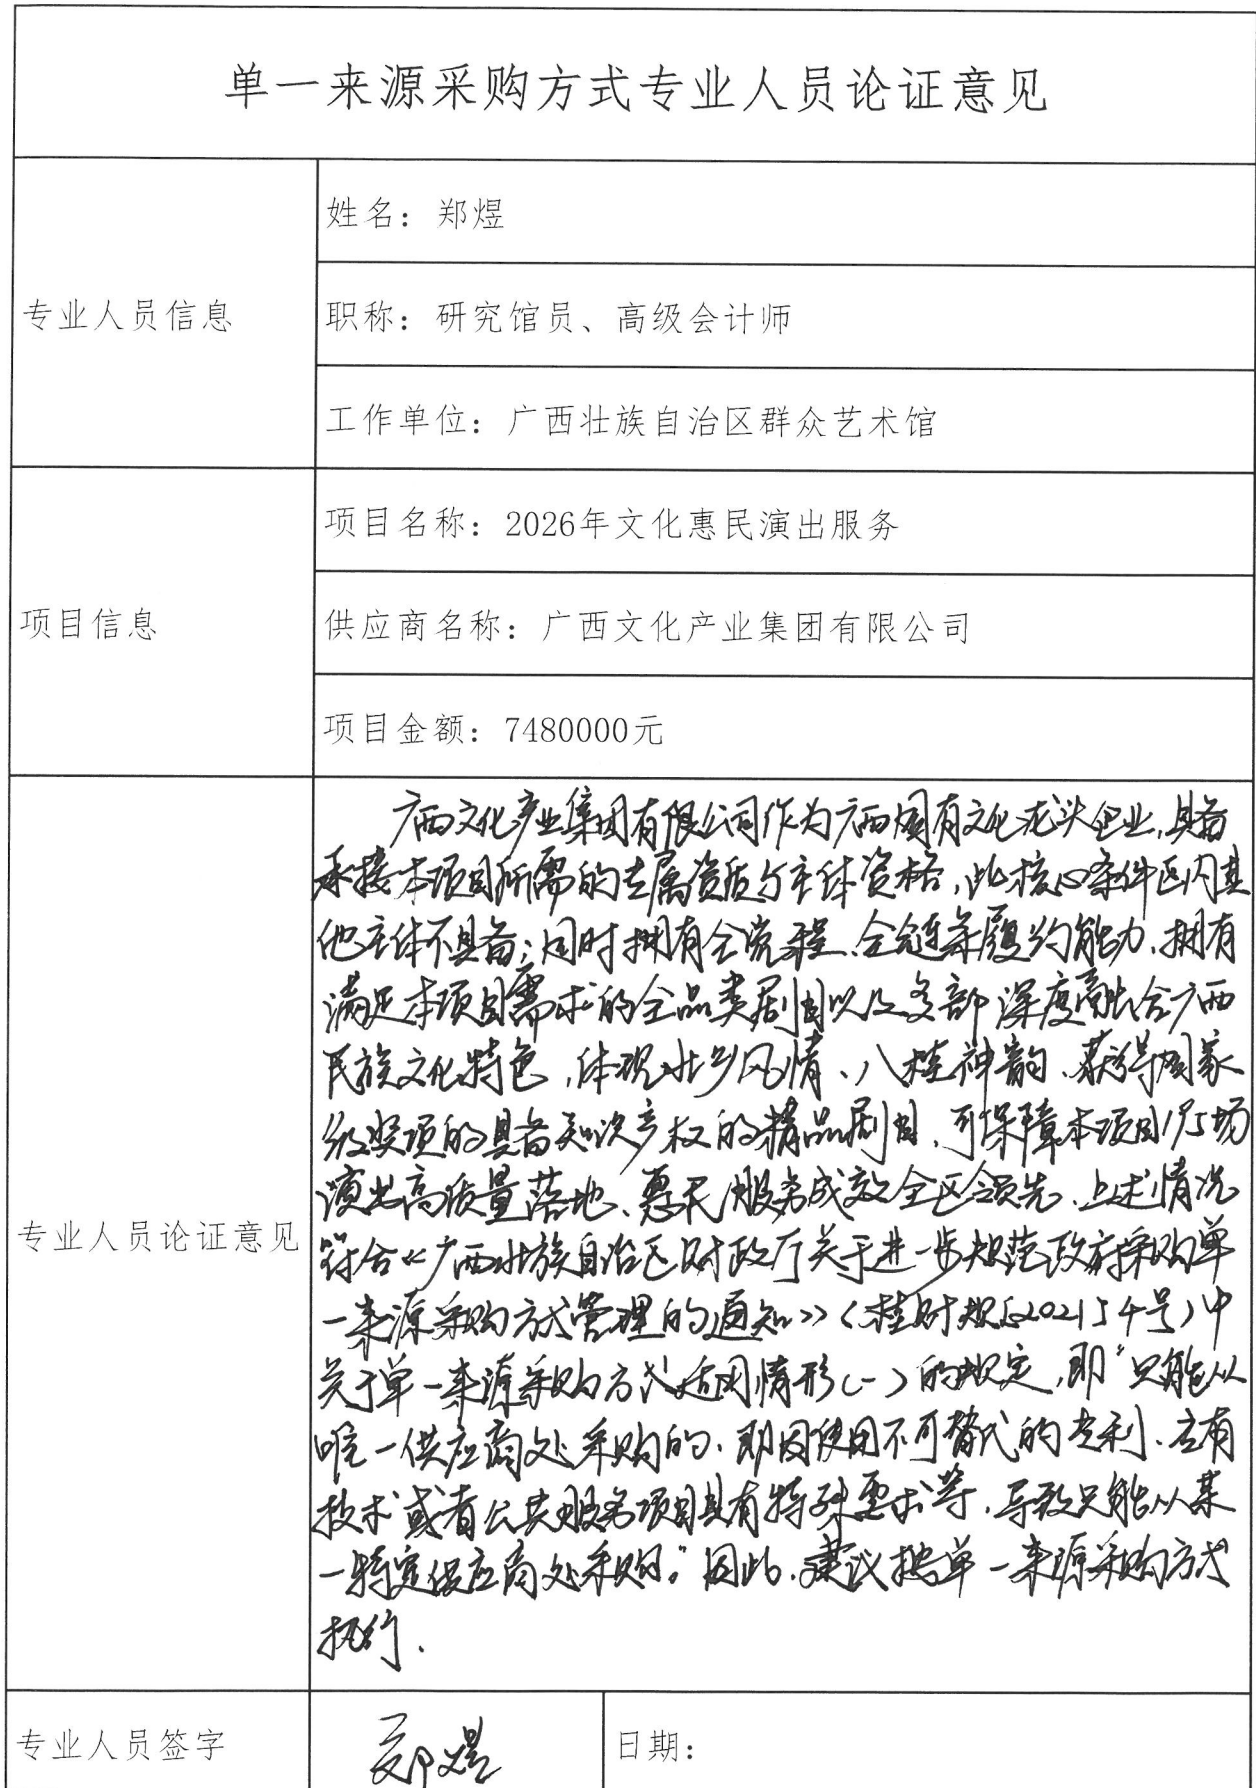 单一来源采购方式专业人员论证意见
专业人员信息
姓名：郑煜
职称：研究馆员、高级会计师
工作单位：广西壮族自治区群众艺术馆
项目信息
项目名称：2026年文化惠民演出服务
供应商名称：广西文化产业集团有限公司
项目金额：7480000元
专业人员论证意见
广西文化产业集团有限公司作为广西国有文化龙头企业，具备
承接本项目所需的专属资质与主体资格，此核心条件区内其
他主体不具备；同时拥有全流程、全链条履约能力，拥有
满足本项目需求的全品类剧目以及多部深度融合广西
民族文化特色，体现壮乡风情、八桂神韵、获得国家
级奖项的具备知识产权的精品剧目，可保障本项目195场
演出高质量落地、惠民服务成效全区领先，上述情况
符合《广西壮族自治区财政厅关于进一步规范政府采购单
一来源采购方式管理的通知》（桂财规〔2021〕4号）中
关于单一来源采购方式适用情形（一）的规定，即“只能从
唯一供应商处采购的，即因使用不可替代的专利、专有
技术或者公共服务项目具有特殊要求等，导致只能从某
一特定供应商处采购。”因此，建议按单一来源采购方式
执行.
专业人员签字
郑煜
日期：